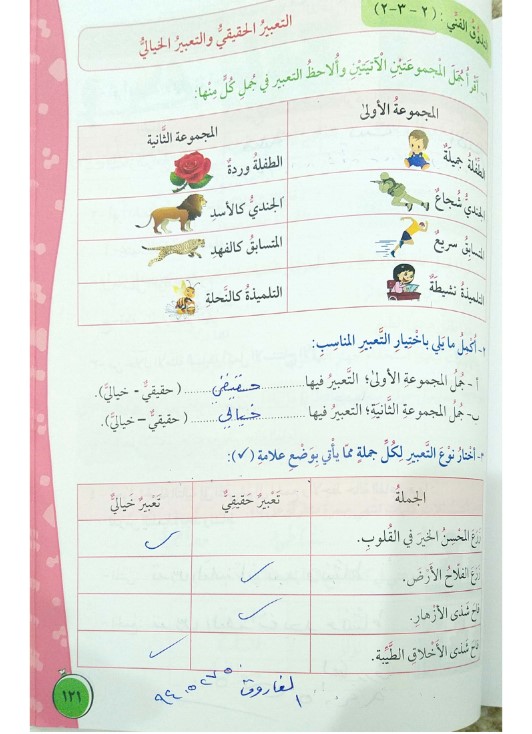 التذوق الفني: (٢-٣-٢)
التعبيرُ الحقيقيُّ والتعبيرُ الخياليُّ
١- أقرأُ جُمَلَ المجموعَتَيْنِ الآتيتَيْنِ وأُلاحظُ التعبيرَ في جُملِ كُلٍّ مِنْها:
المجموعةُ الأولىٰ
المجموعة الثَّانية
الطِّفْلَةُ جميلَةٌ
الطفلةُ وردةٌ
الجنديُّ شُجاعٌ
الجنديُّ كالأسدِ
المتسابقُ سريعٌ
المتسابقُ كالفهدِ
التلميذةُ نشيطةٌ
التلميذةُ كالنَّحلةِ
٢- أُكمِلُ ما يَلي باختِيارِ التَّعبيرِ المناسِبِ:
أ- جُمَلُ المجموعةِ الأولىٰ؛ التَّعبيرُ فيها حقيقي (حقيقيٌّ - خياليٌّ).
ب- جُمَلُ المجموعَةِ الثَّانيَةِ؛ التعبيرُ فيها خيالي (حقيقيٌّ - خياليٌّ).
٣- أختارُ نوْعَ التَّعبيرِ لِكُلِّ جملةٍ ممّا يأتي بِوَضْعِ علامةِ (✓):
الجملةُ
تَعْبيرٌ حَقيقِيٌّ
تَعْبيرٌ خَياليٌّ
زَرَعَ المُحْسِنُ الخيرَ في القُلوبِ.
✓
زَرَعَ الفلّاحُ الأرْضَ.
✓
فاحَ شَذى الأزْهارِ.
✓
فاحَ شَذى الأخْلاقِ الطَّيِّبة.
✓
الفاروق
١٢١